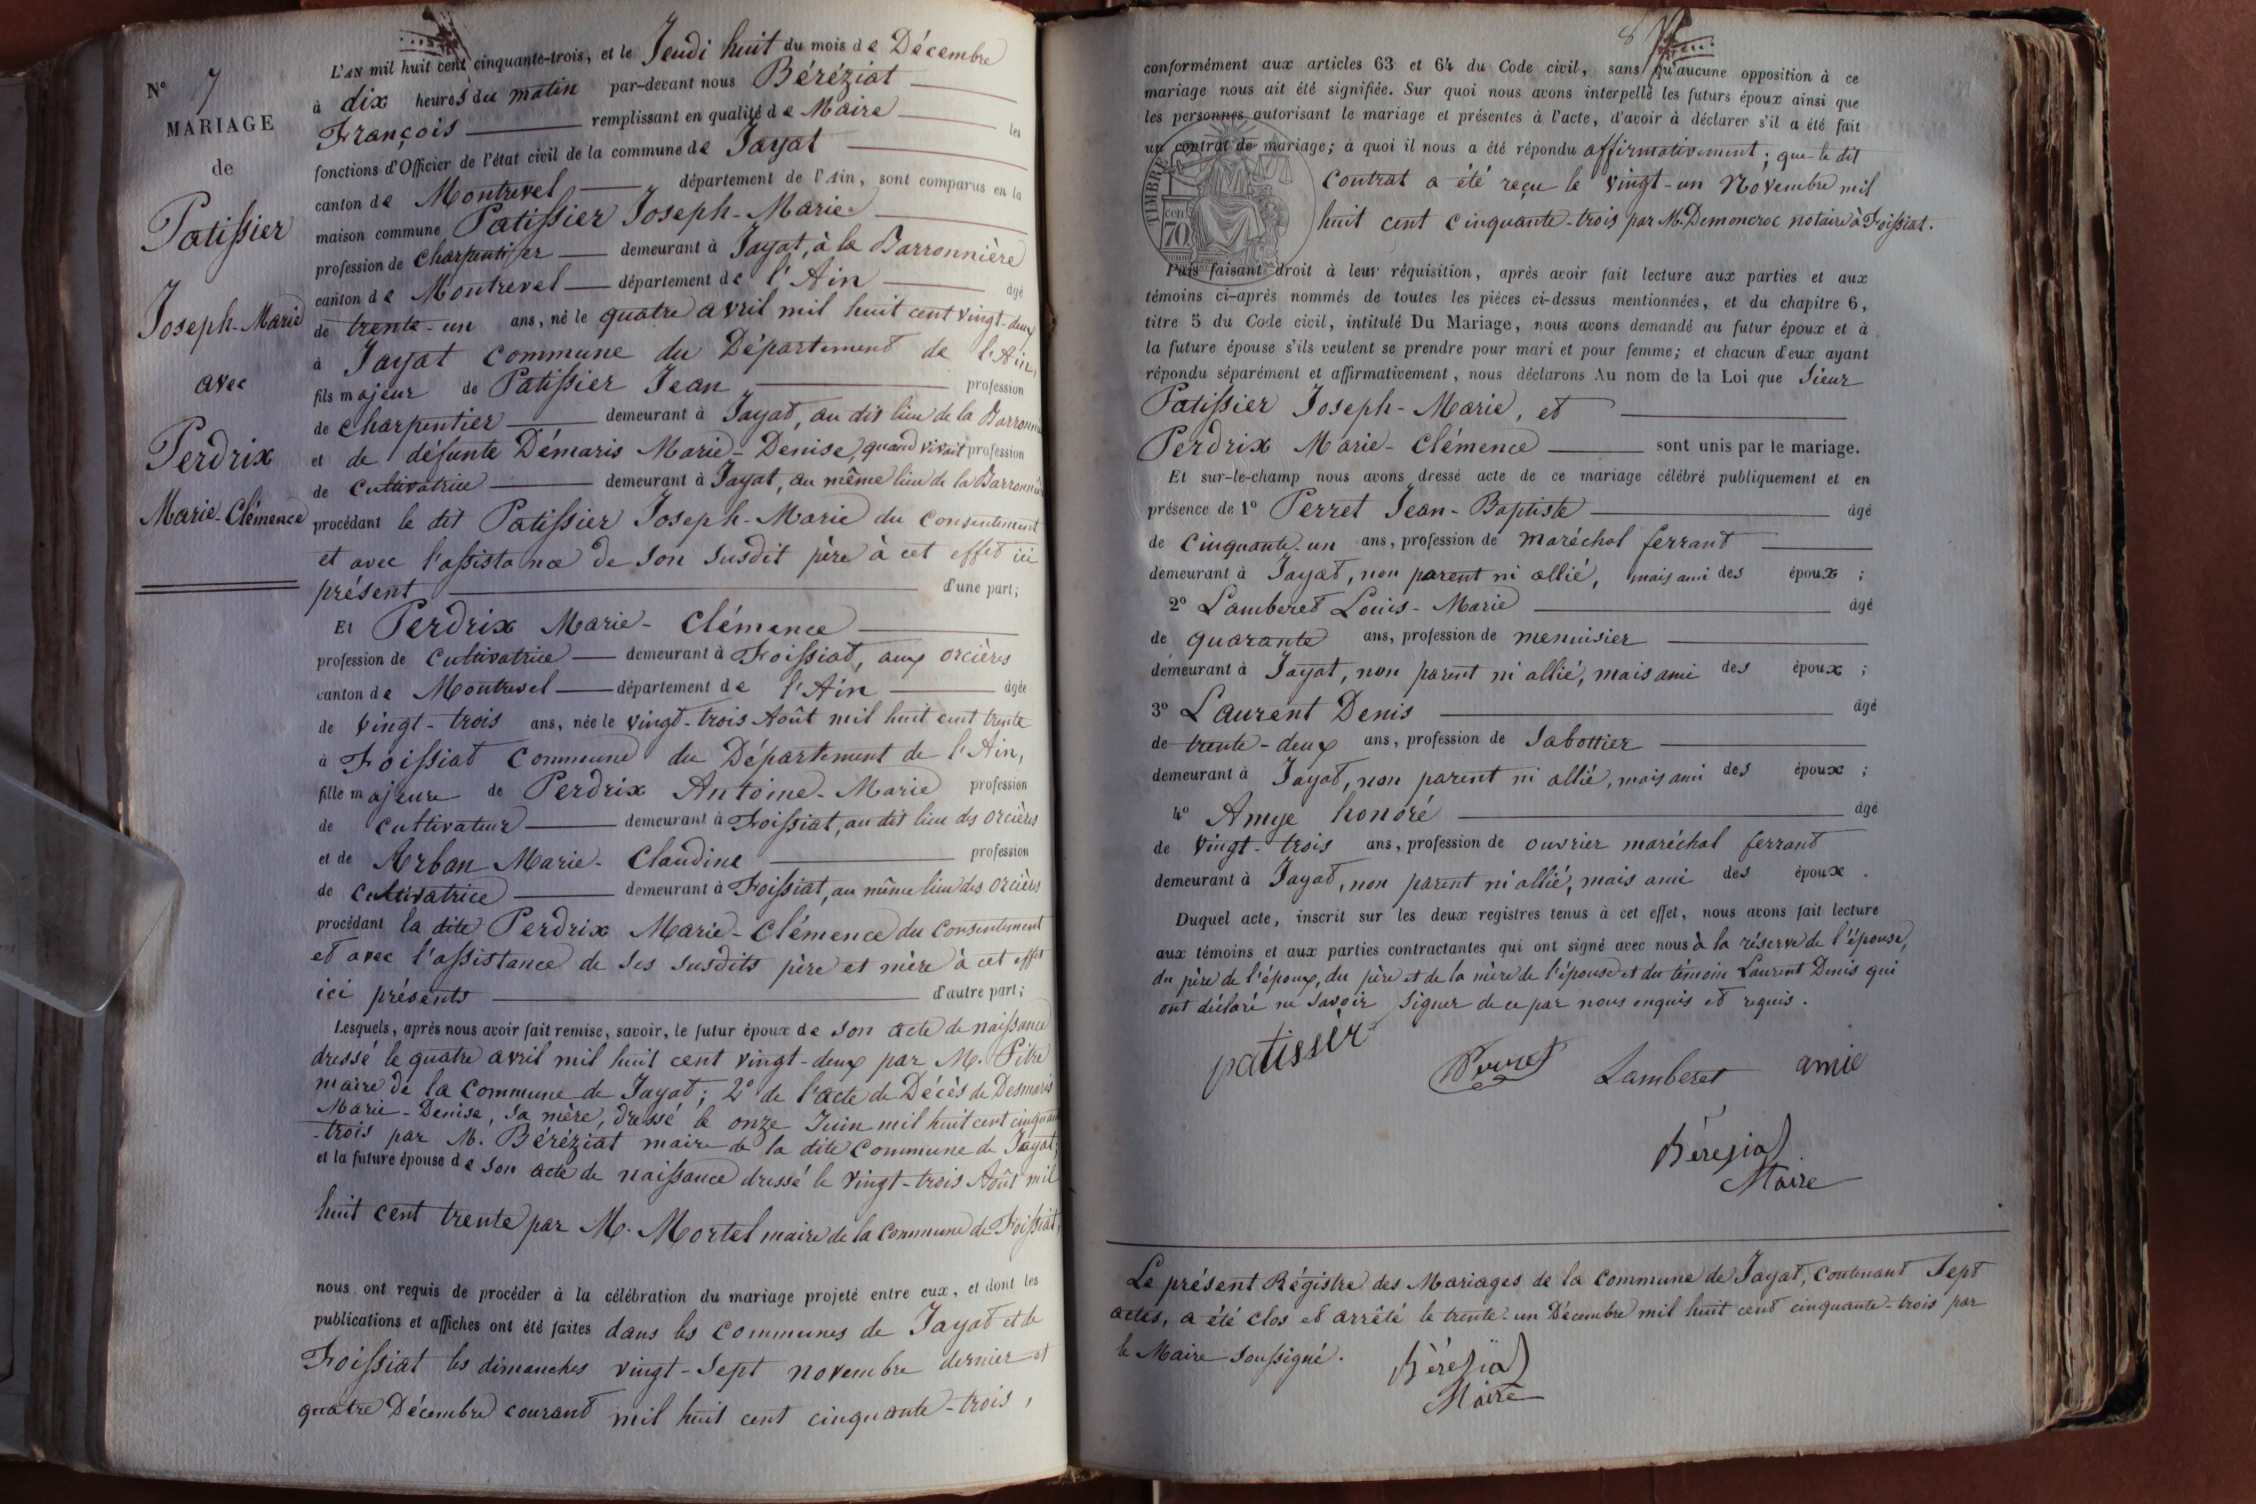 N° 7
MARIAGE
de
Patissier
Joseph-Marie
avec
Perdrix
Marie-Clémence
L'AN mil huit cent cinquante-trois, et le Jeudi huit du mois de Décembre
à dix heures du matin par-devant nous Béréziat
François remplissant en qualité de Maire les
fonctions d'Officier de l'état civil de la commune de Jayat
canton de Montrevel département de l'Ain, sont comparus en la
maison commune Patissier Joseph-Marie
profession de Charpentier demeurant à Jayat, à la Barronnière
canton de Montrevel département de l'Ain âgé
de trente-un ans, né le quatre avril mil huit cent vingt-deux
à Jayat commune du Département de l'Ain,
fils majeur de Patissier Jean profession
de charpentier demeurant à Jayat, au dit lieu de la Barronnière
et de défunte Démaris Marie-Denise, quand vivait profession
de cultivatrice demeurant à Jayat, au même lieu de la Barronnière
procédant le dit Patissier Joseph-Marie du consentement
et avec l'assistance de son susdit père à cet effet ici
présent d'une part;
Et Perdrix Marie-Clémence
profession de cultivatrice demeurant à Foissiat, aux orcières
canton de Montrevel département de l'Ain âgée
de vingt-trois ans, née le vingt-trois Août mil huit cent trente
à Foissiat commune du Département de l'Ain,
fille majeure de Perdrix Antoine-Marie profession
de cultivateur demeurant à Foissiat, au dit lieu des orcières
et de Arban Marie-Claudine profession
de cultivatrice demeurant à Foissiat, au même lieu des orcières
procédant la dite Perdrix Marie-Clémence du consentement
et avec l'assistance de ses susdits père et mère à cet effet
ici présents d'autre part;
Lesquels, après nous avoir fait remise, savoir, le futur époux de son acte de naissance
dressé le quatre avril mil huit cent vingt-deux par M. Pitre
maire de la commune de Jayat; 2° de l'acte de Décès de Desmaris
Marie-Denise, sa mère, dressé le onze Juin mil huit cent cinquante
-trois par M. Béréziat maire de la dite commune de Jayat;
et la future épouse de son acte de naissance dressé le vingt-trois Août mil
huit cent trente par M. Mortel maire de la commune de Foissiat,
nous ont requis de procéder à la célébration du mariage projeté entre eux, et dont les
publications et affiches ont été faites dans les communes de Jayat et de
Foissiat les dimanches vingt-sept novembre dernier et
quatre Décembre courant mil huit cent cinquante-trois,
8
conformément aux articles 63 et 64 du Code civil, sans qu'aucune opposition à ce
mariage nous ait été signifiée. Sur quoi nous avons interpellé les futurs époux ainsi que
les personnes autorisant le mariage et présentes à l'acte, d'avoir à déclarer s'il a été fait
un contrat de mariage; à quoi il nous a été répondu affirmativement; que le dit
contrat a été reçu le vingt-un Novembre mil
huit cent cinquante-trois par Mr. Demoncroc notaire à Foissiat.
TIMBRE
70
Puis faisant droit à leur réquisition, après avoir fait lecture aux parties et aux
témoins ci-après nommés de toutes les pièces ci-dessus mentionnées, et du chapitre 6,
titre 5 du Code civil, intitulé Du Mariage, nous avons demandé au futur époux et à
la future épouse s'ils veulent se prendre pour mari et pour femme; et chacun d'eux ayant
répondu séparément et affirmativement, nous déclarons Au nom de la Loi que Sieur
Patissier Joseph-Marie, et
Perdrix Marie-Clémence sont unis par le mariage.
Et sur-le-champ nous avons dressé acte de ce mariage célébré publiquement et en
présence de 1° Perret Jean-Baptiste âgé
de cinquante-un ans, profession de maréchal ferrant
demeurant à Jayat, non parent ni allié, mais ami des époux;
2° Lamberet Louis-Marie âgé
de quarante ans, profession de menuisier
demeurant à Jayat, non parent ni allié, mais ami des époux;
3° Laurent Denis âgé
de trente-deux ans, profession de sabottier
demeurant à Jayat, non parent ni allié, mais ami des époux;
4° Amye honoré âgé
de vingt-trois ans, profession de ouvrier maréchal ferrant
demeurant à Jayat, non parent ni allié, mais ami des époux.
Duquel acte, inscrit sur les deux registres tenus à cet effet, nous avons fait lecture
aux témoins et aux parties contractantes qui ont signé avec nous à la réserve de l'épouse,
du père de l'époux, du père et de la mère de l'épouse et du témoin Laurent Denis qui
ont déclaré ne savoir signer de ce par nous enquis et requis.
patissier Perret Lamberet amie
Béréziat
Maire
Le présent Régistre des Mariages de la commune de Jayat, contenant Sept
actes, a été clos et arrêté le trente-un Décembre mil huit cent cinquante-trois par
le Maire soussigné.
Béréziat
Maire